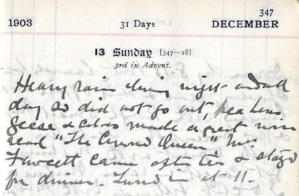 347
1903 31 Days DECEMBER
13 Sunday [347—18]
3rd in Advent.
Heavy rain during night and all
day so did not go out, 
geese a great noise
read "The Queen" Mrs
Fawcett came after tea & stayed
for dinner. at 11.